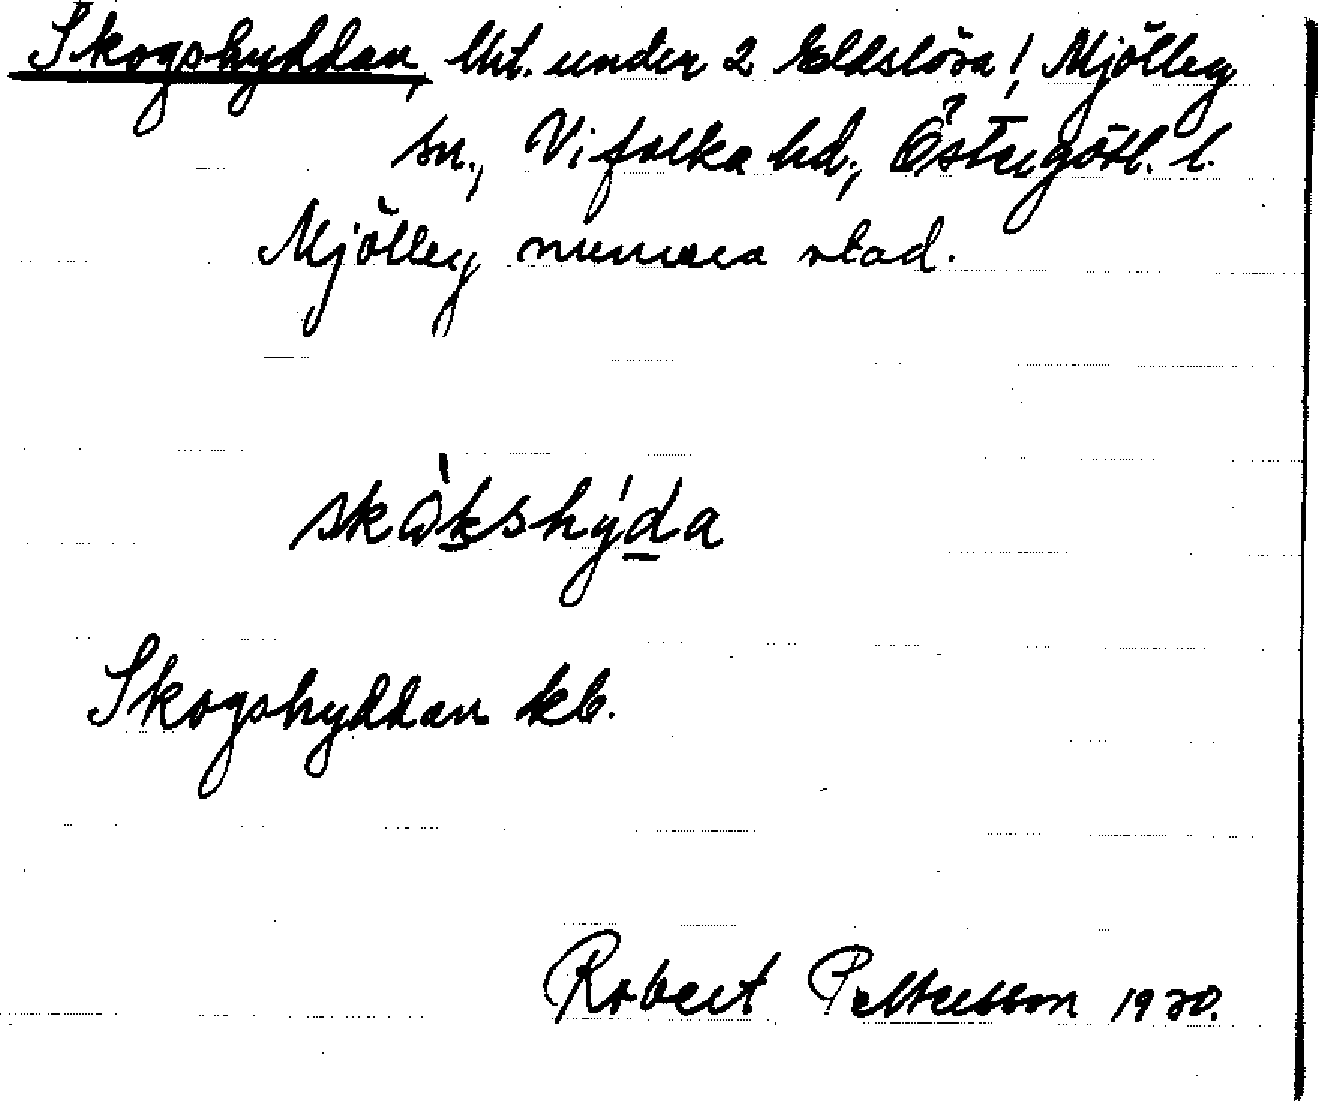 Skogshyddan, lht. under 2 Eldslösa! Mjölby
sn., Vifolka hd., Östergötl. l.
Mjölby numera stad.
skòkshýda
Skogshyddan kb.
Robert Pettersson 1920.